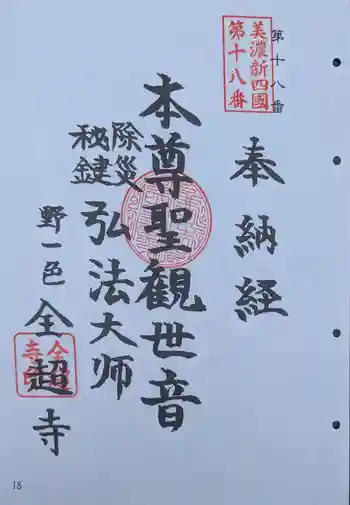 第十八番
美濃新四國
第十八番
奉納経
本尊聖観世音
除災
秘鍵
弘法大師
野一色
全超寺
全
寺
18